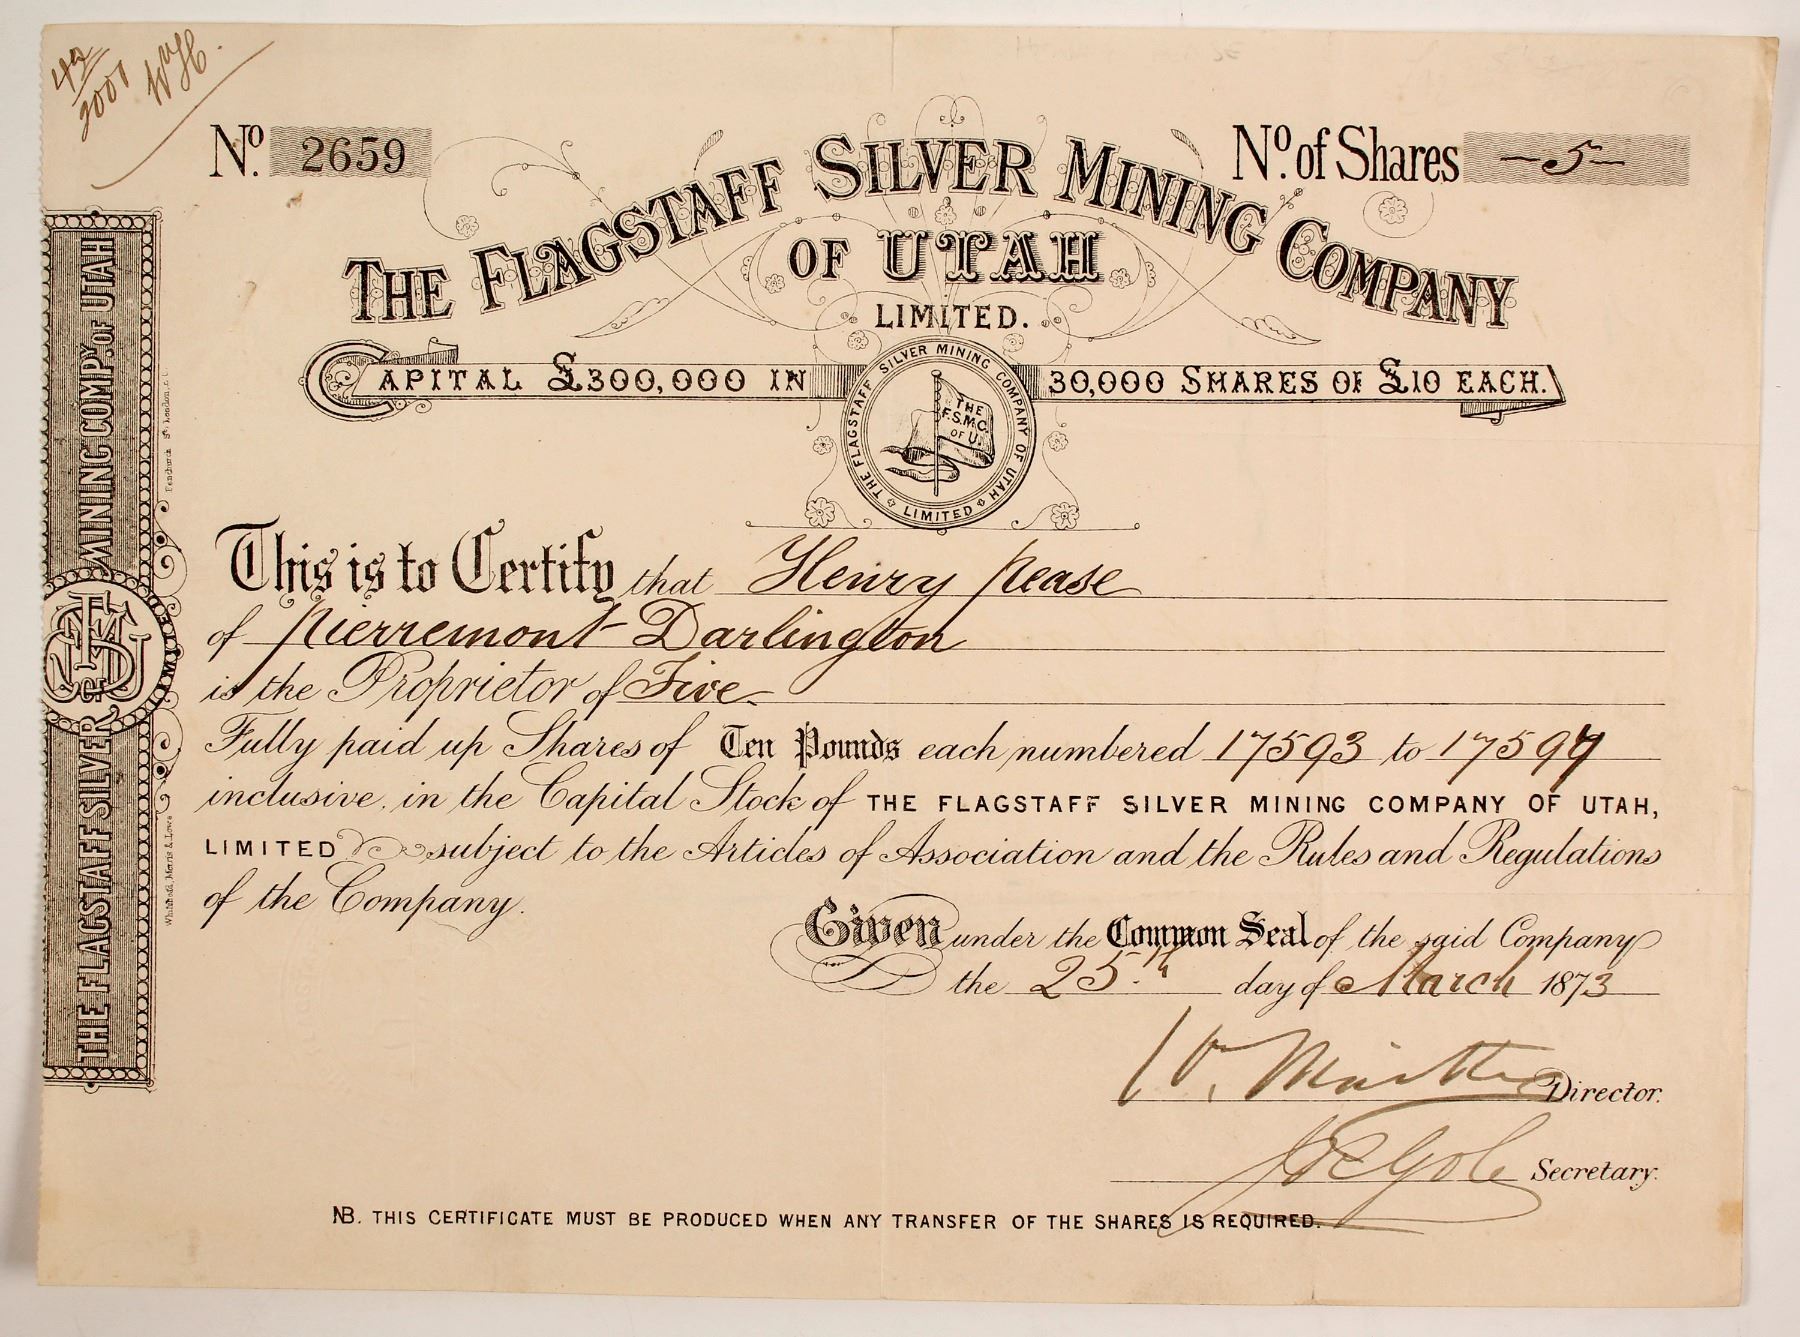 42
2001 WH.
No. 2659
No. of Shares –5–
THE FLAGSTAFF SILVER MINING COMPANY
OF UTAH
LIMITED.
CAPITAL £300,000 IN 30,000 SHARES OF £10 EACH.
THE FLAGSTAFF SILVER MINING COMPANY OF UTAH
LIMITED
THE
F.S.M.C.
OF U.
This is to Certify that Henry Pease
of Pierremont Darlington
is the Proprietor of Five
Fully paid up Shares of Ten Pounds each numbered 17593 to 17597
inclusive. in the Capital Stock of THE FLAGSTAFF SILVER MINING COMPANY OF UTAH,
LIMITED subject to the Articles of Association and the Rules and Regulations
of the Company.
Given under the Common Seal of the said Company
the 25th day of March 1873
Director.
Secretary.
NB. THIS CERTIFICATE MUST BE PRODUCED WHEN ANY TRANSFER OF THE SHARES IS REQUIRED.
THE FLAGSTAFF SILVER MINING COMPY. OF UTAH
Whitehead, Morris & Lowe Fenchurch St. London